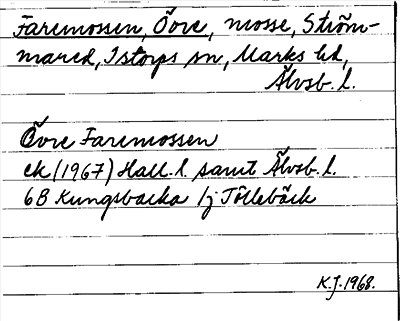 Faremossen, Övre, mosse, Ström-
mared, Istorps sn, Marks hd,
Älvsb. l.
Övre Faremossen
ek (1967) Hall. l. samt Älvsb. l.
6B Kungsbacka /j Töllebäck
K.J. 1968.